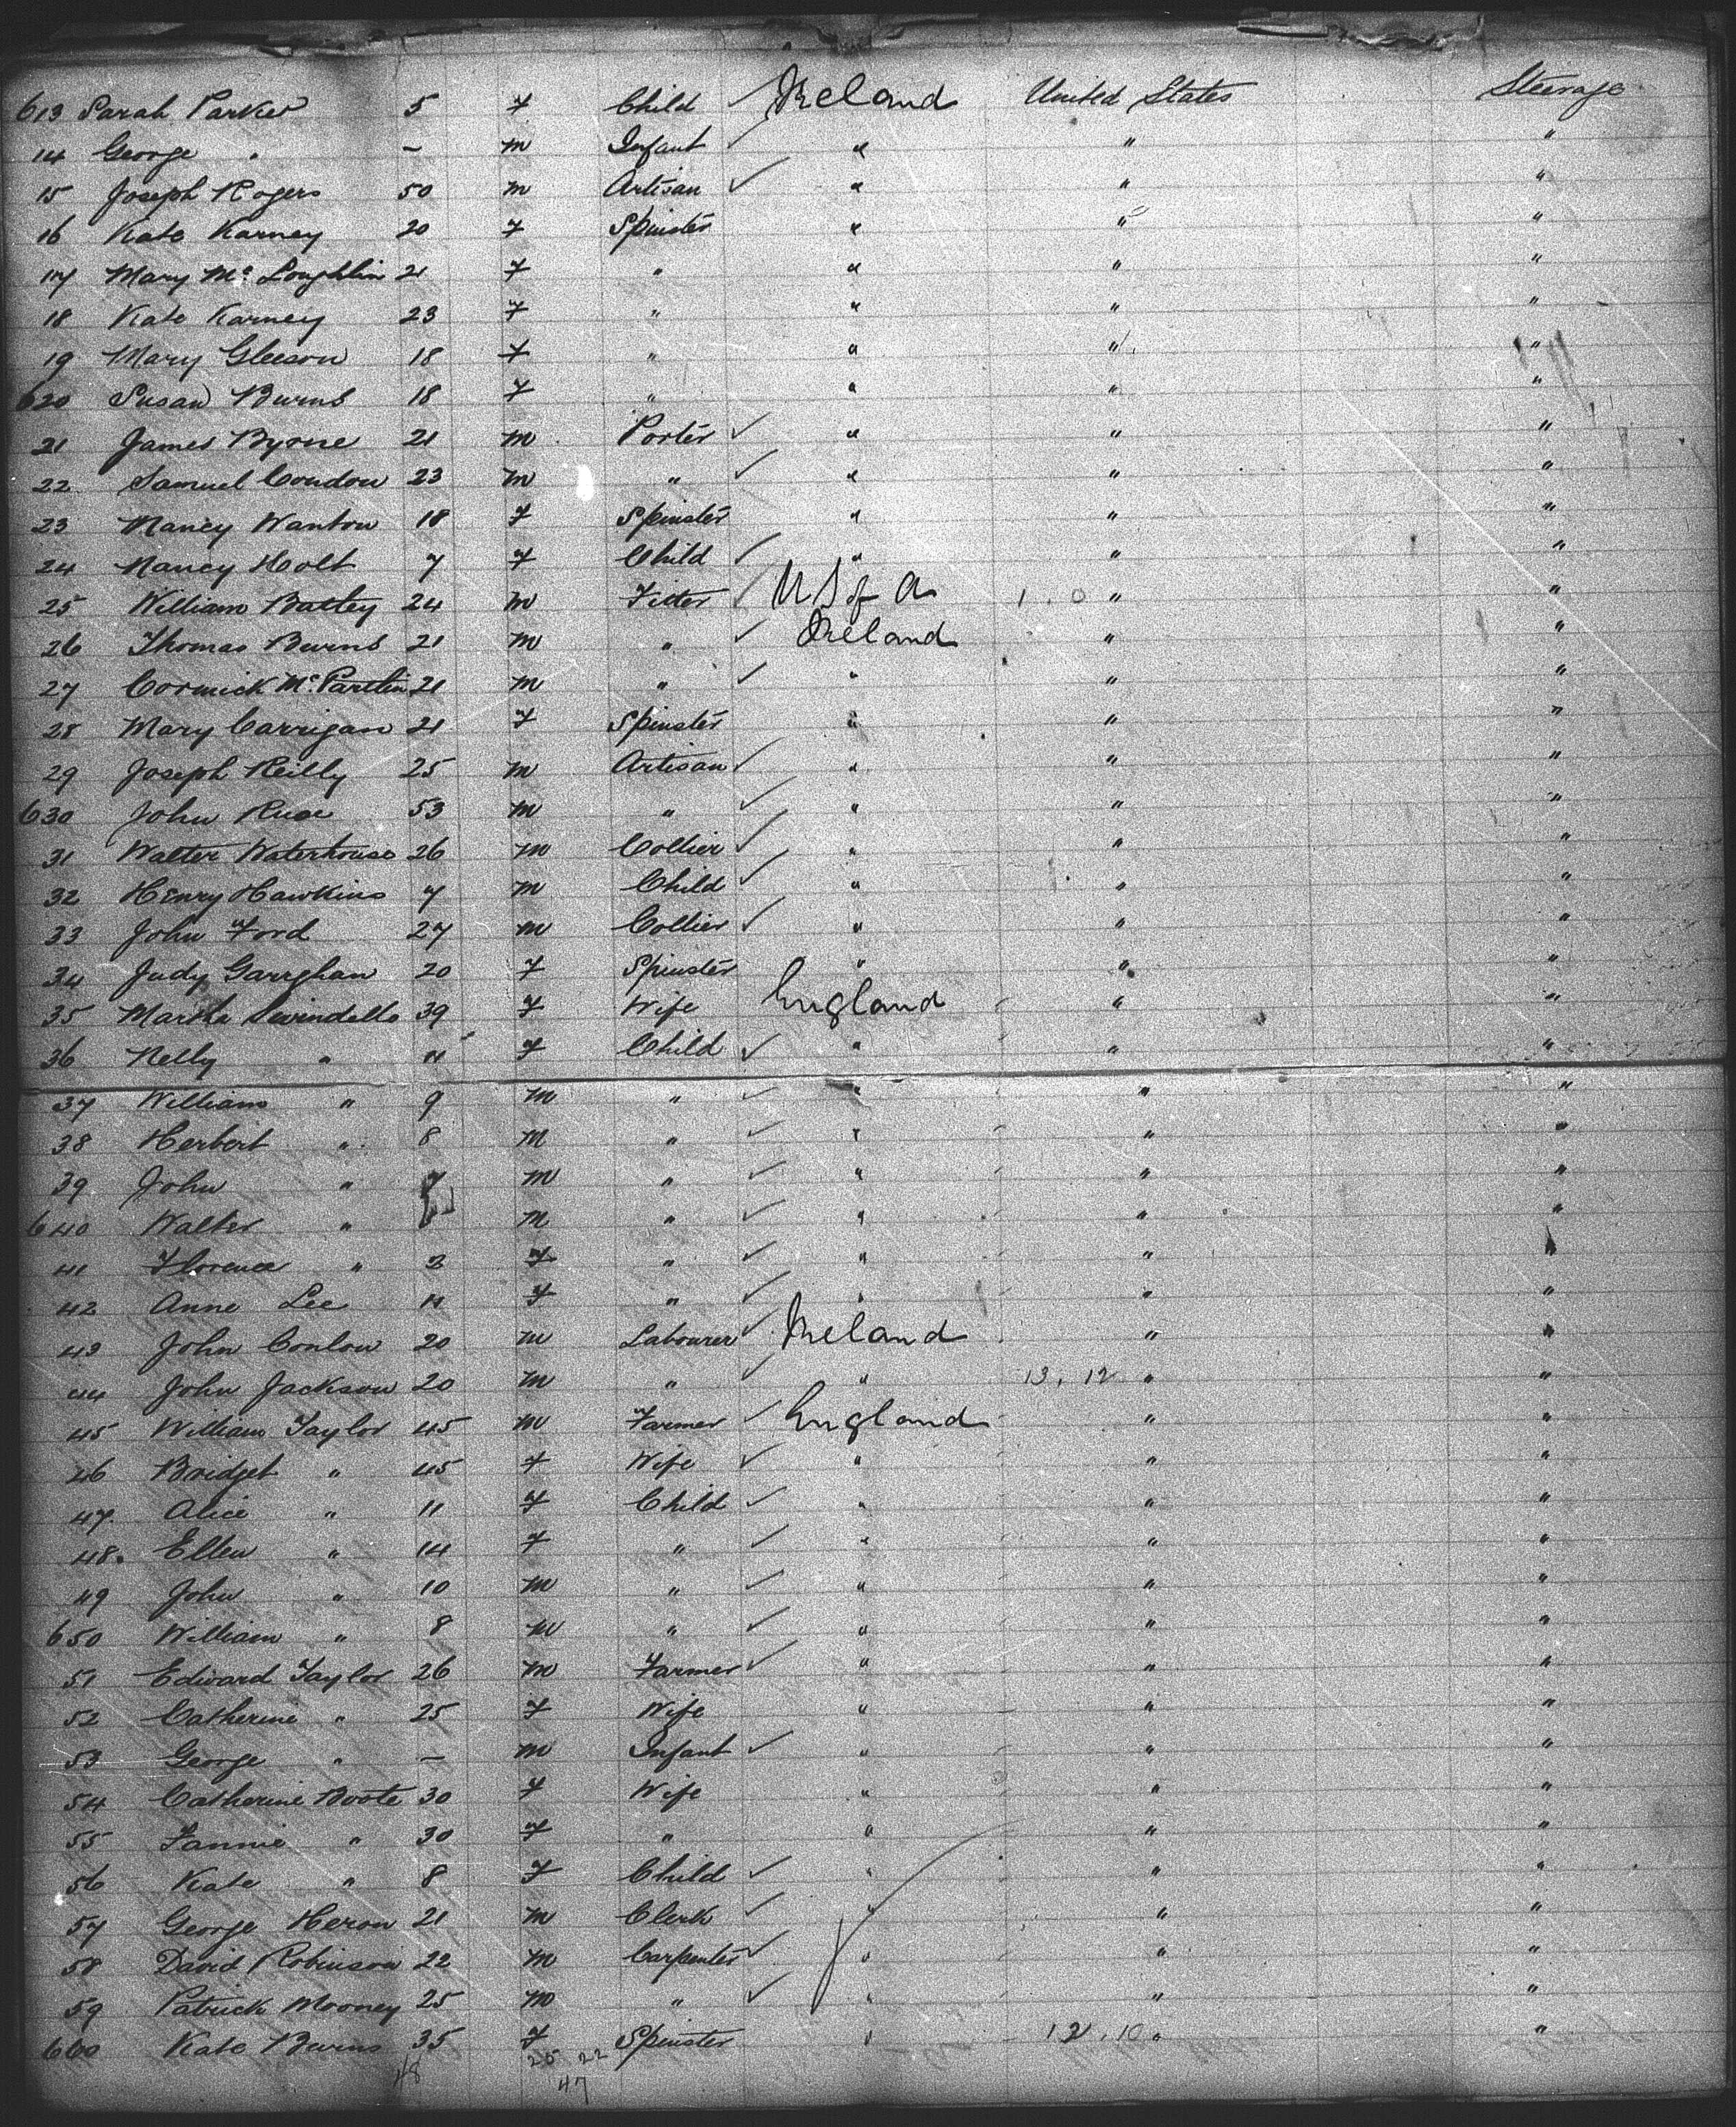 613 Sarah Parker 5 F Child ✓ Ireland United States Steerage
14 George " – M Infant ✓ " " "
15 Joseph Rogers 50 M Artisan ✓ " " "
16 Kate Karney 20 F Spinster " " "
17 Mary McLoughlin 21 F " " " "
18 Kate Karney 23 F " " " "
19 Mary Gleeson 18 F " " " "
620 Susan Burns 18 F " " " "
21 James Byrne 21 M Porter ✓ " " "
22 Samuel Condon 23 M " ✓ " " "
23 Nancy Wanton 18 F Spinster " " "
24 Nancy Holt 7 F Child ✓ " " "
25 William Batley 24 M Fitter ✓ U S of A 1.0 " "
26 Thomas Burns 21 M " ✓ Ireland " "
27 Cormick McPartlin 21 M " ✓ " " "
28 Mary Carrigan 21 F Spinster " " "
29 Joseph Reilly 25 M Artisan ✓ " " "
630 John 53 M " ✓ " " "
31 Walter Waterhouse 26 M Collier ✓ " " "
32 Henry Hawkins 7 M Child ✓ " " "
33 John Ford 27 M Collier ✓ " " "
34 Judy Garrghan 20 F Spinster " " "
35 Martha Swindells 39 F Wife England " "
36 Nelly " 11 F Child ✓ " " "
37 William " 9 M " ✓ " " "
38 Herbert " 8 M " ✓ " " "
39 John " 7 M " ✓ " " "
640 Walter " M " ✓ " " "
41 Florence " 2 F " ✓ " " "
42 Anne Lee 11 F " ✓ " " "
43 John Conlon 20 M Labourer ✓ Ireland " "
44 John Jackson 20 M " ✓ " 13.12 " "
45 William Taylor 45 M Farmer ✓ England " "
46 Bridget " 45 F Wife ✓ " " "
47 Alice " 11 F Child ✓ " " "
48 Ellen " 14 F " ✓ " " "
49 John " 10 M " ✓ " " "
650 William " 8 M " ✓ " " "
51 Edward Taylor 26 M Farmer ✓ " " "
52 Catherine " 25 F Wife " " "
53 George " – M Infant ✓ " " "
54 Catherine Boote 30 F Wife " " "
55 Fannie " 30 F " " " "
56 Kate " 8 F Child ✓ " " "
57 George Heron 21 M Clerk ✓ " " "
58 David Robinson 22 M Carpenter ✓ " " "
59 Patrick Mooney 25 M " ✓ " " "
660 Kate Burns 35 F Spinster " 12.10 " "
48 25 22
47